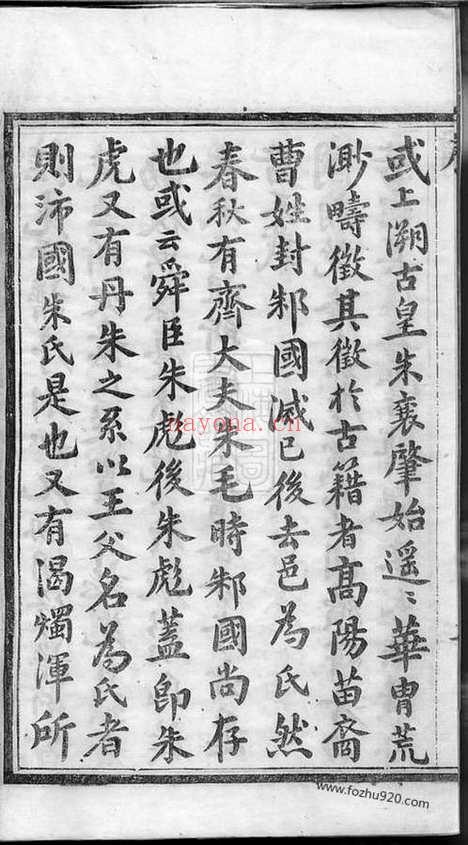 或上溯古皇朱襄肇始遥〻華胄荒
渺疇徵其徵於古籍者高陽苗裔
曹姓封邾國滅已後去邑為氏然
春秋有齊大夫朱毛時邾國尚存
也或云舜臣朱彪後朱彪蓋即朱
虎又有丹朱之系以王父名為氏者
則沛國朱氏是也又有渴燭渾所
nayona.cn
www.fozhu920.com